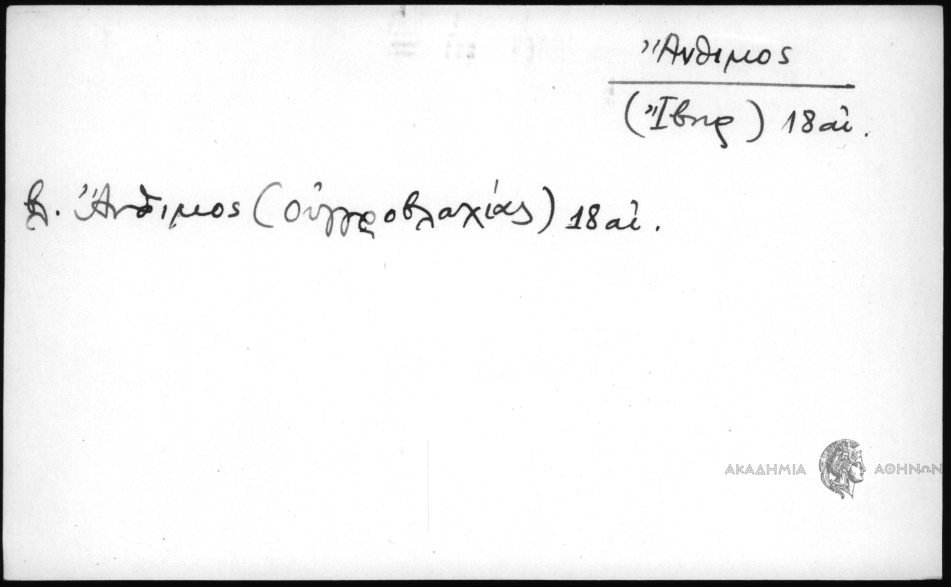 Ἄνθιμος
(Ἴβηρ) 18 αἰ.
βλ. Ἄνθιμος (Οὐγγροβλαχίας) 18 αἰ.
ΑΚΑΔΗΜΙΑ ΑΘΗΝΩΝ